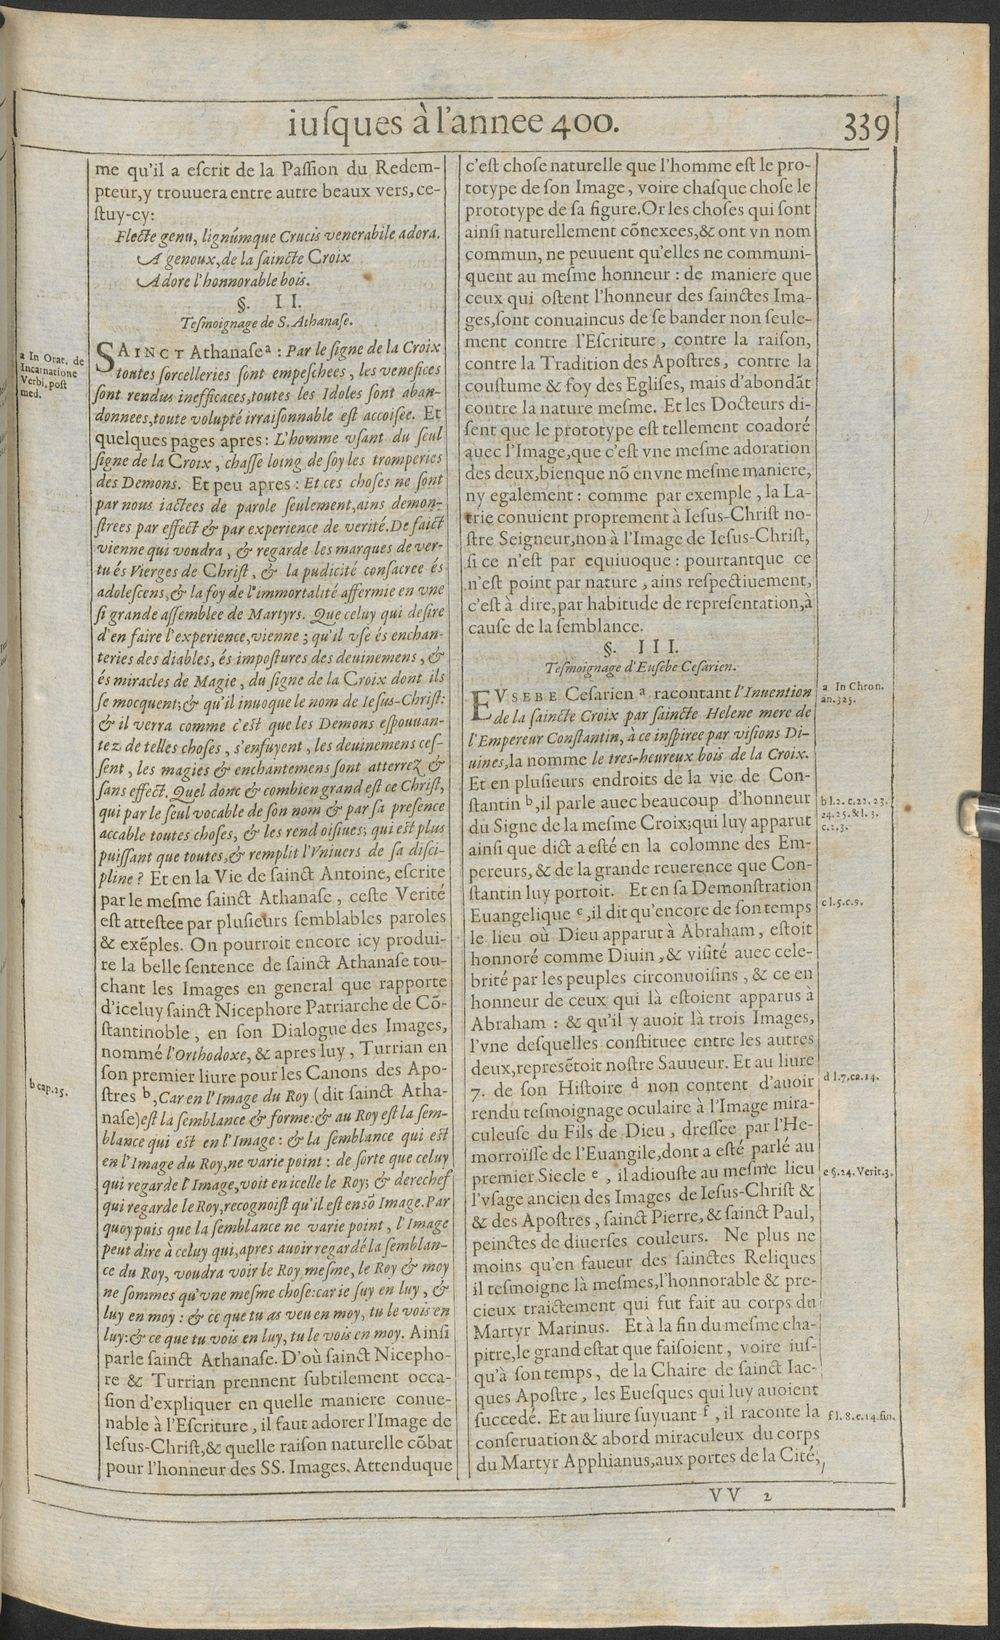 iuſques à l'annee 400.
339
me qu'il a eſcrit de la Paſſion du Redem-
pteur, y trouuera entre autre beaux vers, ce-
ſtuy-cy:
Flecte genu, lignúmque Crucis venerabile adora.
A genoux, de la ſaincte Croix
Adore l'honnorable bois.
§. II.
Teſmoignage de S. Athanaſe.
SAINCT Athanaſe a : Par le ſigne de la Croix
toutes ſorcelleries ſont empeſchees, les venefices
ſont rendus inefficaces, toutes les Idoles ſont aban-
donnees, toute volupté irraiſonnable eſt accoiſée. Et
quelques pages apres: L'homme vſant du ſeul
ſigne de la Croix, chaſſe loing de ſoy les tromperies
des Demons. Et peu apres: Et ces choſes ne ſont
par nous iactees de parole ſeulement, ains demon-
ſtrees par effect & par experience de verité. De faict
vienne qui voudra, & regarde les marques de ver-
tu és Vierges de Chriſt, & la pudicité conſacree és
adoleſcens, & la foy de l'immortalité affermie en vne
ſi grande aſſemblee de Martyrs. Que celuy qui deſire
d'en faire l'experience, vienne; qu'il vſe és enchan-
teries des diables, és impoſtures des deuinemens, &
és miracles de Magie, du ſigne de la Croix dont ils
ſe mocquent; & qu'il inuoque le nom de Ieſus-Chriſt:
& il verra comme c'eſt que les Demons eſpouuan-
tez de telles choſes, s'enfuyent, les deuinemens ceſ-
ſent, les magies & enchantemens ſont atterrez &
ſans effect. Quel donc & combien grand eſt ce Chriſt,
qui par le ſeul vocable de ſon nom & par ſa preſence
accable toutes choſes, & les rend oiſiues; qui eſt plus
puiſſant que toutes, & remplit l'Vniuers de ſa diſci-
pline? Et en la Vie de ſainct Antoine, eſcrite
par le meſme ſainct Athanaſe, ceſte Verité
eſt atteſtee par pluſieurs ſemblables paroles
& exẽples. On pourroit encore icy produi-
re la belle ſentence de ſainct Athanaſe tou-
chant les Images en general que rapporte
d'iceluy ſainct Nicephore Patriarche de Cõ-
ſtantinoble, en ſon Dialogue des Images,
nommé l'Orthodoxe, & apres luy, Turrian en
ſon premier liure pour les Canons des Apo-
ſtres b, Car en l'Image du Roy (dit ſainct Atha-
naſe) eſt la ſemblance & forme: & au Roy eſt la ſem-
blance qui eſt en l'Image: & la ſemblance qui eſt
en l'Image du Roy, ne varie point: de ſorte que celuy
qui regarde l'Image, voit en icelle le Roy; & derechef
qui regarde le Roy, recognoiſt qu'il eſt en sõ Image. Par
quoy puis que la ſemblance ne varie point, l'Image
peut dire à celuy qui, apres auoir regardé la ſemblan-
ce du Roy, voudra voir le Roy meſme, le Roy & moy
ne ſommes qu'vne meſme choſe: car ie ſuy en luy, &
luy en moy: & ce que tu as veu en moy, tu le vois en
luy: & ce que tu vois en luy, tu le vois en moy. Ainſi
parle ſainct Athanaſe. D'où ſainct Nicepho-
re & Turrian prennent ſubtilement occa-
ſion d'expliquer en quelle maniere conue-
nable à l'Eſcriture, il faut adorer l'Image de
Ieſus-Chriſt, & quelle raiſon naturelle cõbat
pour l'honneur des SS. Images. Attenduque
a In Orat. de
Incarnatione
Verbi, poſt
med.
b cap. 25.
c'eſt choſe naturelle que l'homme eſt le pro-
totype de ſon Image, voire chaſque choſe le
prototype de ſa figure. Or les choſes qui ſont
ainſi naturellement cõnexees, & ont vn nom
commun, ne peuuent qu'elles ne communi-
quent au meſme honneur: de maniere que
ceux qui oſtent l'honneur des ſainctes Ima-
ges, ſont conuaincus de ſe bander non ſeule-
ment contre l'Eſcriture, contre la raiſon,
contre la Tradition des Apoſtres, contre la
couſtume & foy des Egliſes, mais d'abondãt
contre la nature meſme. Et les Docteurs di-
ſent que le prototype eſt tellement coadoré
auec l'Image, que c'eſt vne meſme adoration
des deux, bienque nõ en vne meſme maniere,
ny egalement: comme par exemple, la La-
trie conuient proprement à Ieſus-Chriſt no-
ſtre Seigneur, non à l'Image de Ieſus-Chriſt,
ſi ce n'eſt par equiuoque: pourtantque ce
n'eſt point par nature, ains reſpectiuement,
c'eſt à dire, par habitude de repreſentation, à
cauſe de la ſemblance.
§. III.
Teſmoignage d'Euſebe Ceſarien.
EVSEBE Ceſarien a racontant l'Inuention
de la ſaincte Croix par ſaincte Helene mere de
l'Empereur Conſtantin, à ce inſpiree par viſions Di-
uines, la nomme le tres-heureux bois de la Croix.
Et en pluſieurs endroits de la vie de Con-
ſtantin b, il parle auec beaucoup d'honneur
du Signe de la meſme Croix; qui luy apparut
ainſi que dict a eſté en la colomne des Em-
pereurs, & de la grande reuerence que Con-
ſtantin luy portoit. Et en ſa Demonſtration
Euangelique c, il dit qu'encore de ſon temps
le lieu où Dieu apparut à Abraham, eſtoit
honnoré comme Diuin, & viſité auec cele-
brité par les peuples circonuoiſins, & ce en
honneur de ceux qui là eſtoient apparus à
Abraham: & qu'il y auoit là trois Images,
l'vne deſquelles conſtituee entre les autres
deux, repreſẽtoit noſtre Sauueur. Et au liure
7. de ſon Hiſtoire d non content d'auoir
rendu teſmoignage oculaire à l'Image mira-
culeuſe du Fils de Dieu, dreſſee par l'He-
morroïſſe de l'Euangile, dont a eſté parlé au
premier Siecle e, il adiouſte au meſme lieu
l'vſage ancien des Images de Ieſus-Chriſt &
& des Apoſtres, ſainct Pierre, & ſainct Paul,
peinctes de diuerſes couleurs. Ne plus ne
moins qu'en faueur des ſainctes Reliques
il teſmoigne là meſmes, l'honnorable & pre-
cieux traictement qui fut fait au corps du
Martyr Marinus. Et à la fin du meſme cha-
pitre, le grand eſtat que faiſoient, voire iuſ-
qu'à ſon temps, de la Chaire de ſainct Iac-
ques Apoſtre, les Eueſques qui luy auoient
ſuccedé. Et au liure ſuyuant f, il raconte la
conſeruation & abord miraculeux du corps
du Martyr Apphianus, aux portes de la Cité,
a In Chron.
an. 325.
b l. 2. c. 22. 23.
24. 25. & l. 3.
c. 2, 3.
c l. 5. c. 9.
d l. 7. ca. 14.
e §. 24. Verit. 3.
f l. 8. c. 14. fin.
VV 2